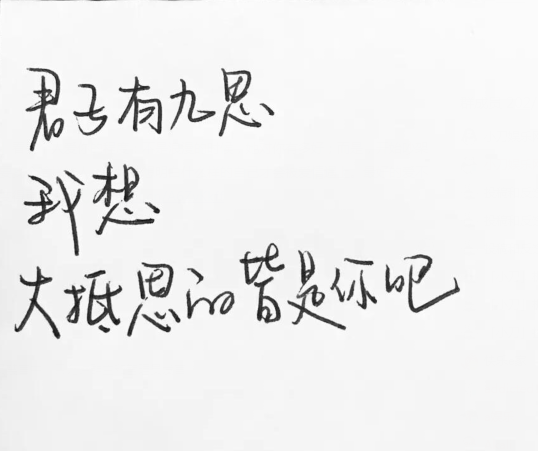 君子有九思
我想
大抵思的皆是你吧